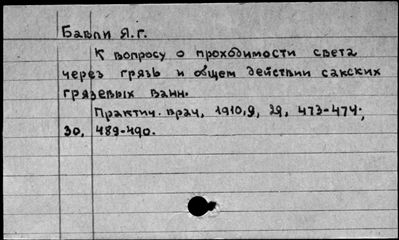 Бавли Я.Г.
К вопросу о проходимости света
через грязь и общем действии сакских
грязевых ванн.
Практич. врач, 1910,9, 29, 473-474;
30, 489-490.